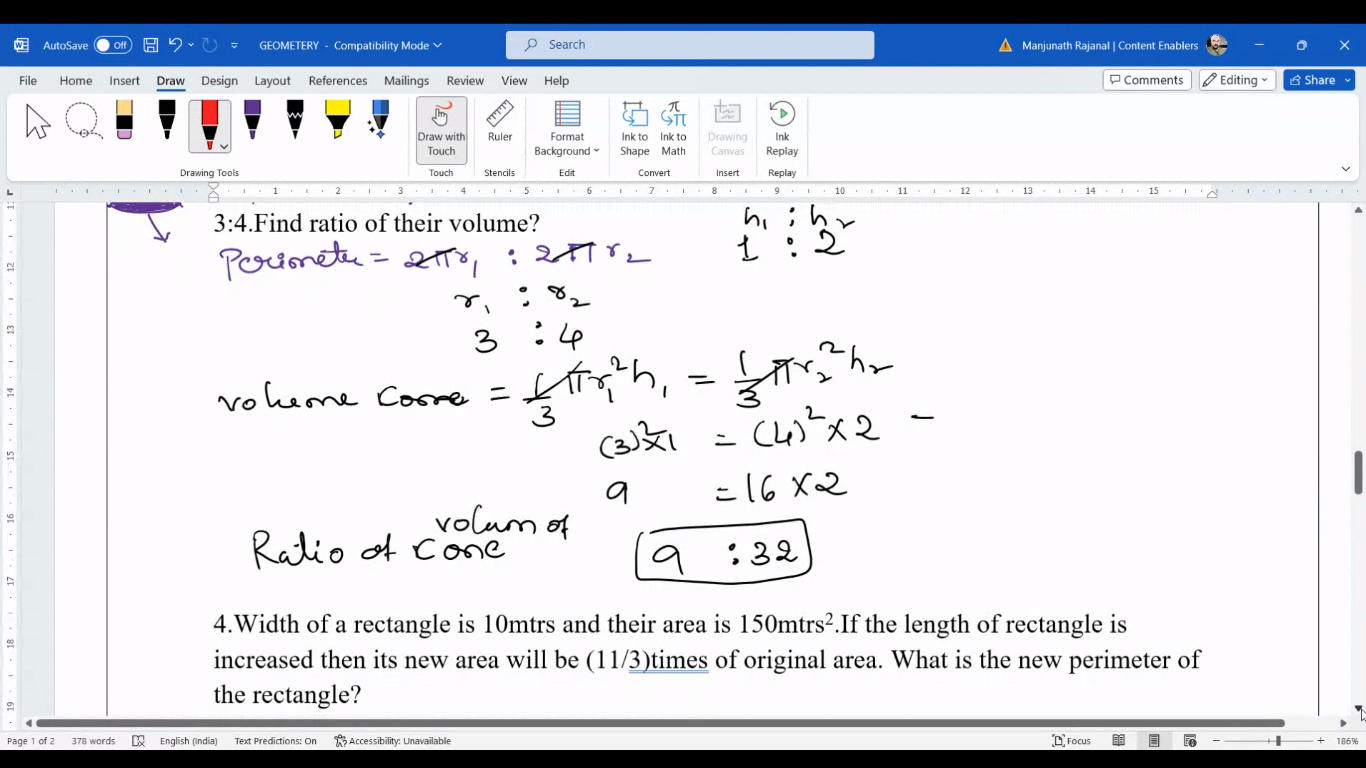 AutoSave Off GEOMETERY - Compatibility Mode Search Manjunath Rajanal | Content Enablers
File Home Insert Draw Design Layout References Mailings Review View Help Comments Editing Share
Draw with Touch Ruler Format Background Ink to Shape Ink to Math Drawing Canvas Ink Replay
Drawing Tools Touch Stencils Edit Convert Insert Replay
1 1 2 3 4 5 6 7 8 9 10 11 12 13 14 15
3:4.Find ratio of their volume?
h₁ : h₂
1 : 2
Perimeter = 2πr₁ : 2πr₂
r₁ : r₂
3 : 4
volume cone = 1/3 πr₁²h₁ = 1/3 πr₂²h₂
(3)²×1 = (4)²×2 -
9 = 16×2
Ratio of volum of cone 9 : 32
4.Width of a rectangle is 10mtrs and their area is 150mtrs².If the length of rectangle is
increased then its new area will be (11/3)times of original area. What is the new perimeter of
the rectangle?
Page 1 of 2 378 words English (India) Text Predictions: On Accessibility: Unavailable Focus 186%